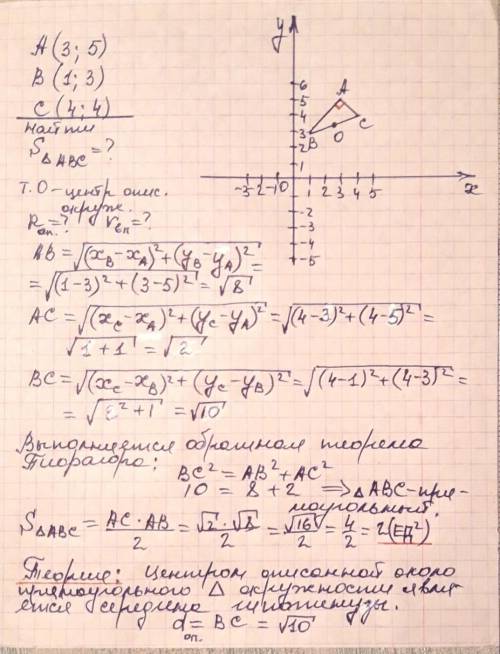 A (3; 5)
B (1; 3)
C (4; 4)
Найти
S△ABC = ?
т. O - центр опис.
окруж.
Rоп. = ? rвп = ?
y
6
5
4
3
1
A
B
O
C
-3 -2 -1 0 1 2 3 4 5 x
-2
-3
-4
-5
AB = √((xB - xA)² + (yB - yA)²) =
= √((1-3)² + (3-5)²) = √8
AC = √((xC - xA)² + (yC - yA)²) = √((4-3)² + (4-5)²) =
√(1+1) = √2
BC = √((xC - xB)² + (yC - yB)²) = √((4-1)² + (4-3)²) =
= √(3² + 1) = √10
Выполняется обратная теорема
Пифагора:
BC² = AB² + AC²
10 = 8 + 2 ⇒ △ABC - пря-
моугольный.
S△ABC = AC · AB / 2 = √2 · √8 / 2 = √16 / 2 = 4/2 = 2 (ЕД²)
Теория: Центром описанной около
прямоугольного △ окружности явля-
ется середина гипотенузы.
dоп. = BC = √10